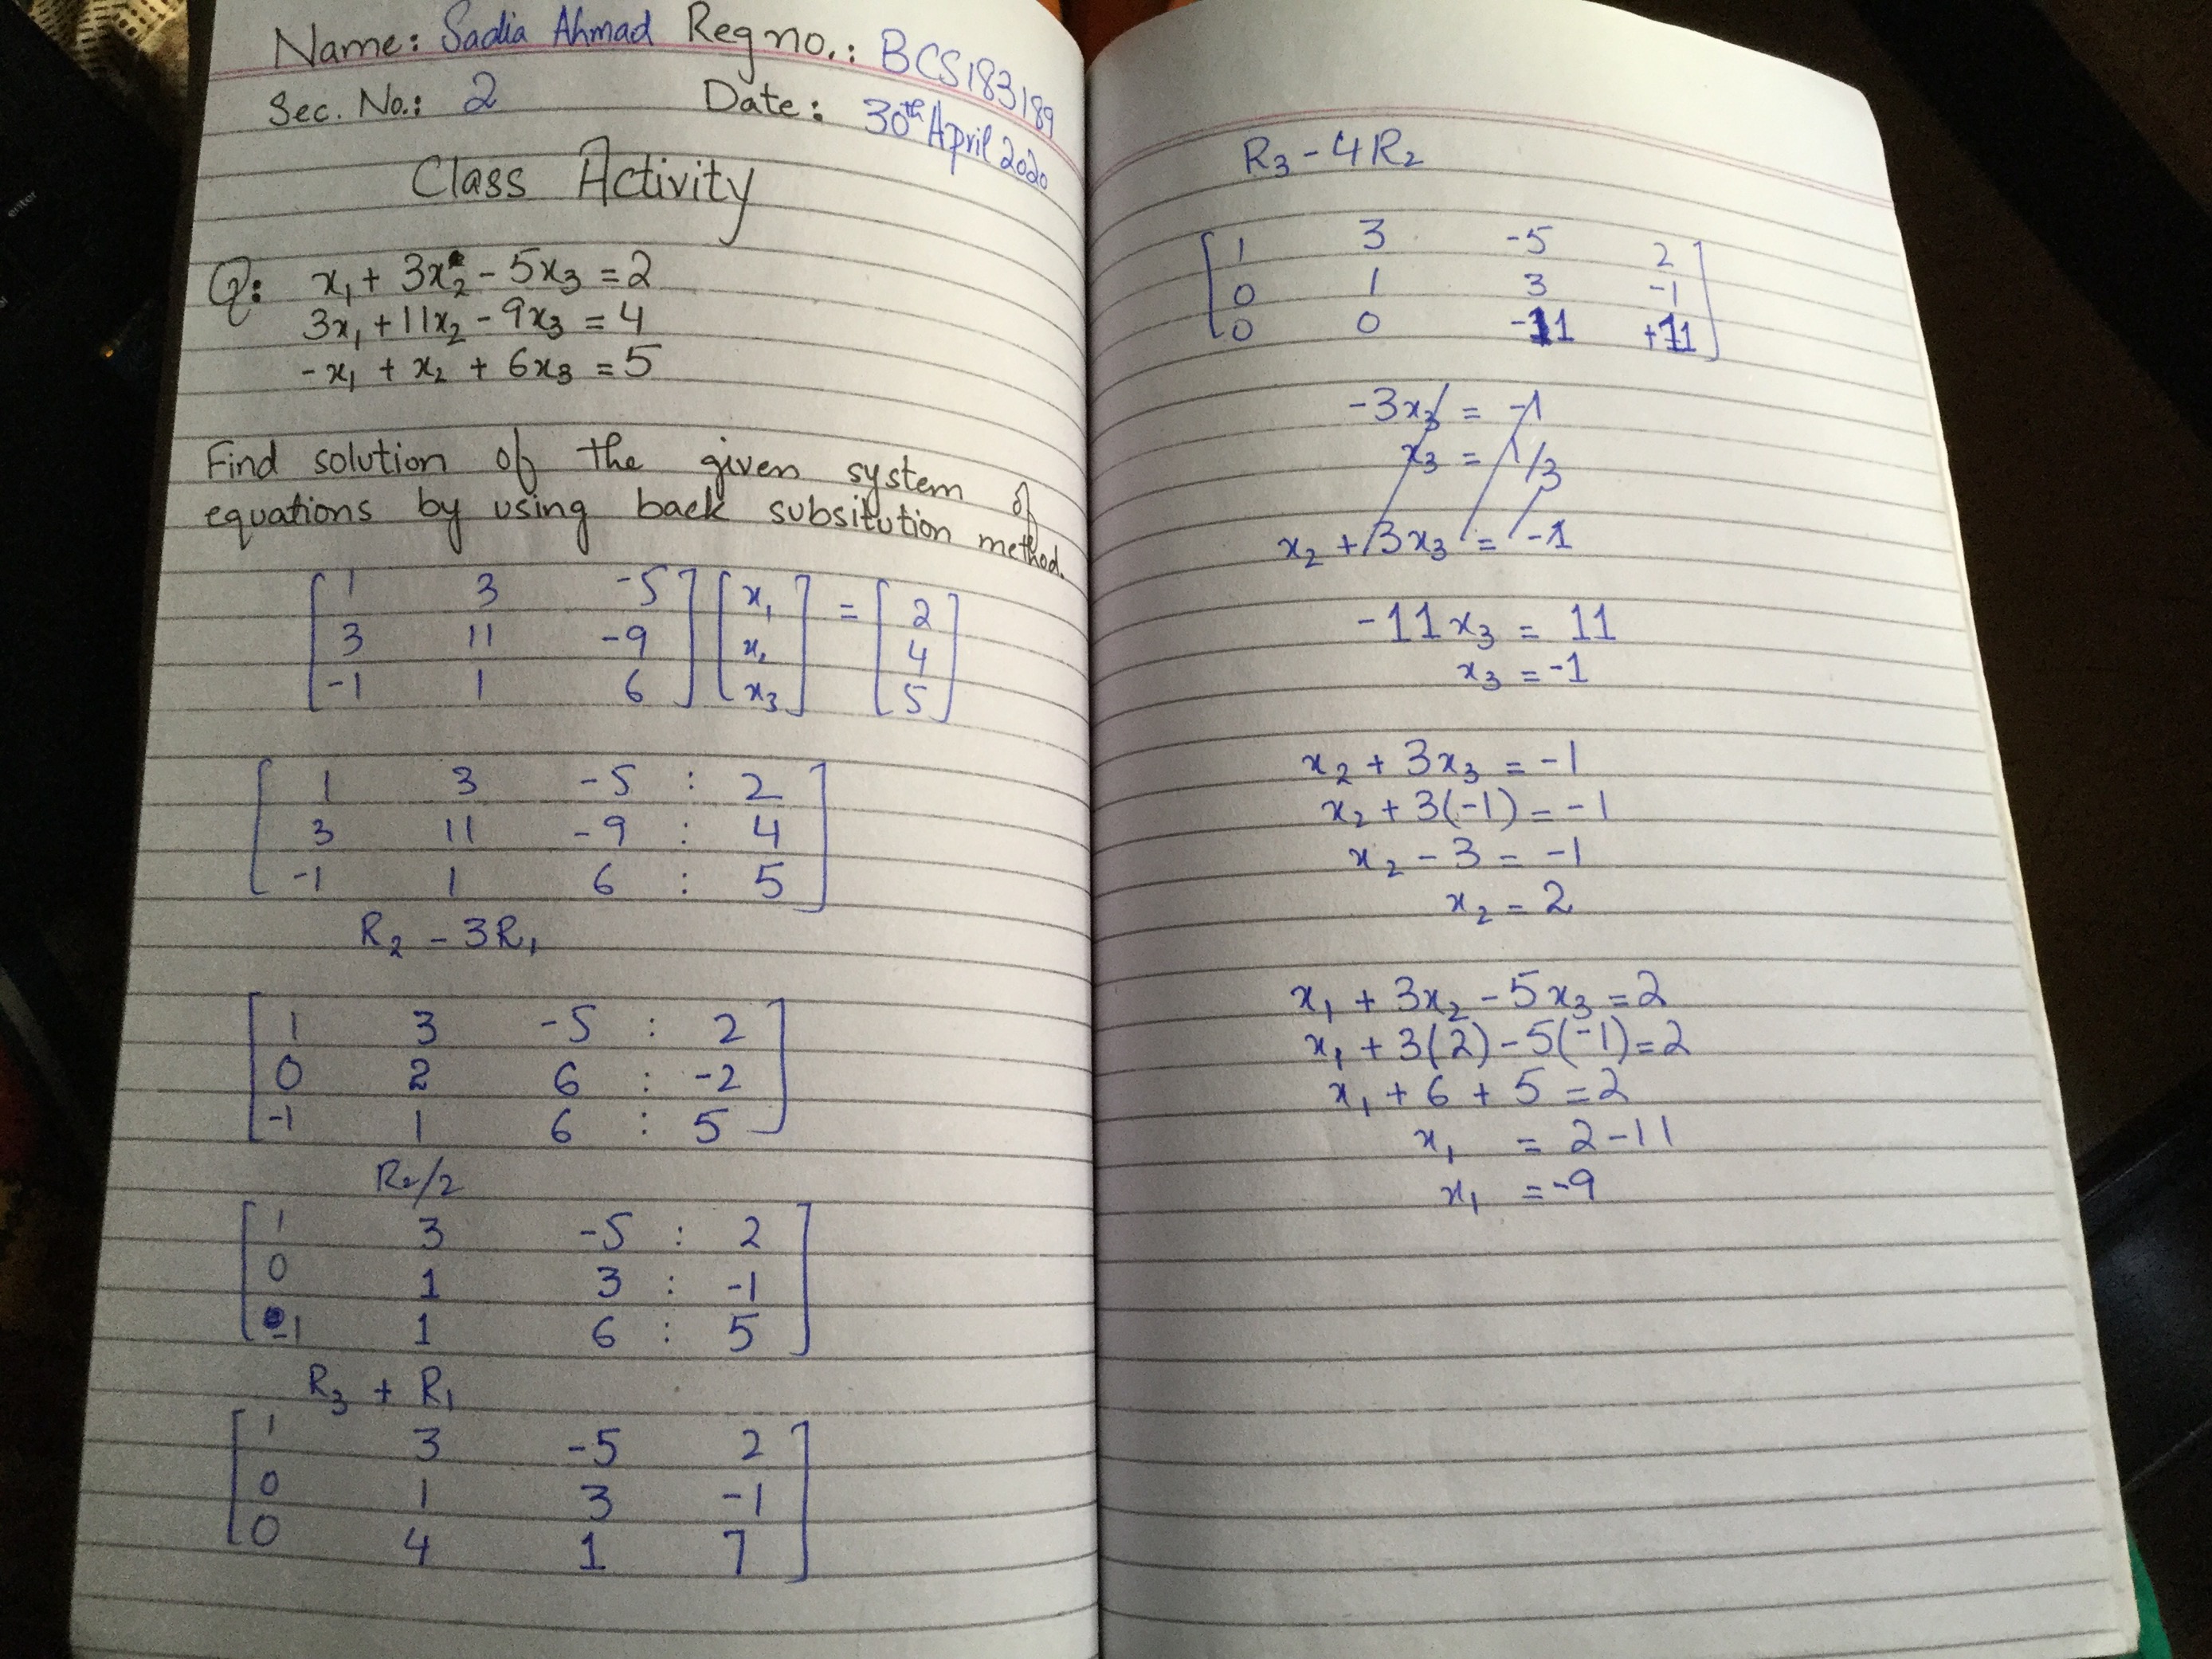 Name: Sadia Ahmad Reg no.: BCS183189
Sec. No.: 2 Date: 30th April 2020
Class Activity
Q: x₁ + 3x₂ - 5x₃ = 2
3x₁ + 11x₂ - 9x₃ = 4
- x₁ + x₂ + 6x₃ = 5
Find solution of the given system of
equations by using back subsitution method.
[ 1 3 -5 ] [ x₁ ] = [ 2 ]
[ 3 11 -9 ] [ x₂ ] [ 4 ]
[ -1 1 6 ] [ x₃ ] [ 5 ]
[ 1 3 -5 : 2 ]
[ 3 11 -9 : 4 ]
[ -1 1 6 : 5 ]
R₂ - 3R₁
[ 1 3 -5 : 2 ]
[ 0 2 6 : -2 ]
[ -1 1 6 : 5 ]
R₂/2
[ 1 3 -5 : 2 ]
[ 0 1 3 : -1 ]
[ -1 1 6 : 5 ]
R₃ + R₁
[ 1 3 -5 2 ]
[ 0 1 3 -1 ]
[ 0 4 1 7 ]
R₃ - 4R₂
[ 1 3 -5 2 ]
[ 0 1 3 -1 ]
[ 0 0 -11 +11 ]
-3x₃ = -1
x₃ = 1/3
x₂ + 3x₃ = -1
-11x₃ = 11
x₃ = -1
x₂ + 3x₃ = -1
x₂ + 3(-1) = -1
x₂ - 3 = -1
x₂ = 2
x₁ + 3x₂ - 5x₃ = 2
x₁ + 3(2) - 5(-1) = 2
x₁ + 6 + 5 = 2
x₁ = 2 - 11
x₁ = -9